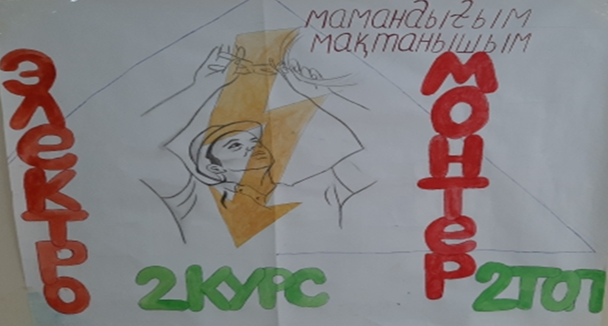 мамандығым
мақтанышым
ЭЛеКТРО
МОНТеР
2КУРС
2ТОП